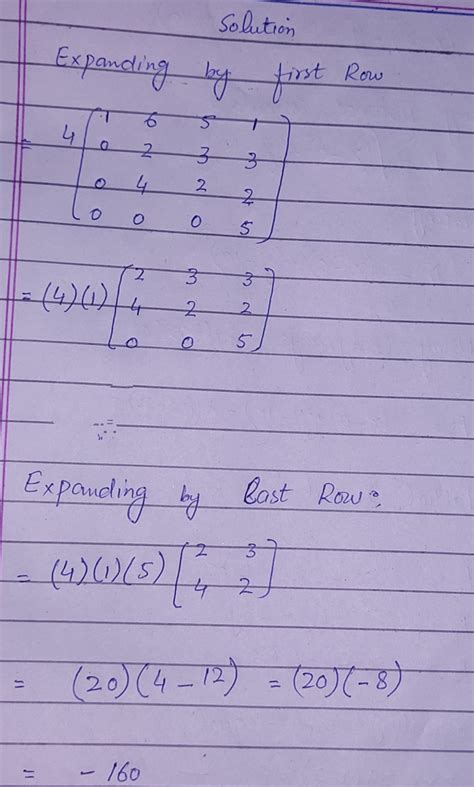 Solution
Expanding by first Row
= 4 [1 6 5 1
0 2 3 3
0 4 2 2
0 0 0 5]
= (4)(1) [2 3 3
4 2 2
0 0 5]
Expanding by Last Row:
= (4)(1)(5) [2 3
4 2]
= (20)(4-12) = (20)(-8)
= -160